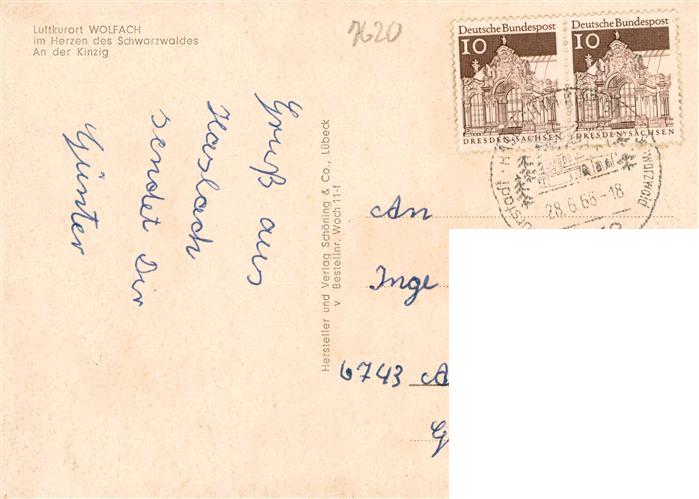 Luftkurort WOLFACH
im Herzen des Schwarzwaldes
An der Kinzig
7620
Gruß aus
Haslach
sendet Dir
Günter
Hersteller und Verlag Schöning & Co., Lübeck
v Bestellnr. Woch 11-f
Deutsche Bundespost
10
DRESDEN·SACHSEN
Deutsche Bundespost
10
DRESDEN·SACHSEN
28.6.68-18
An
Inge
6743 A
G